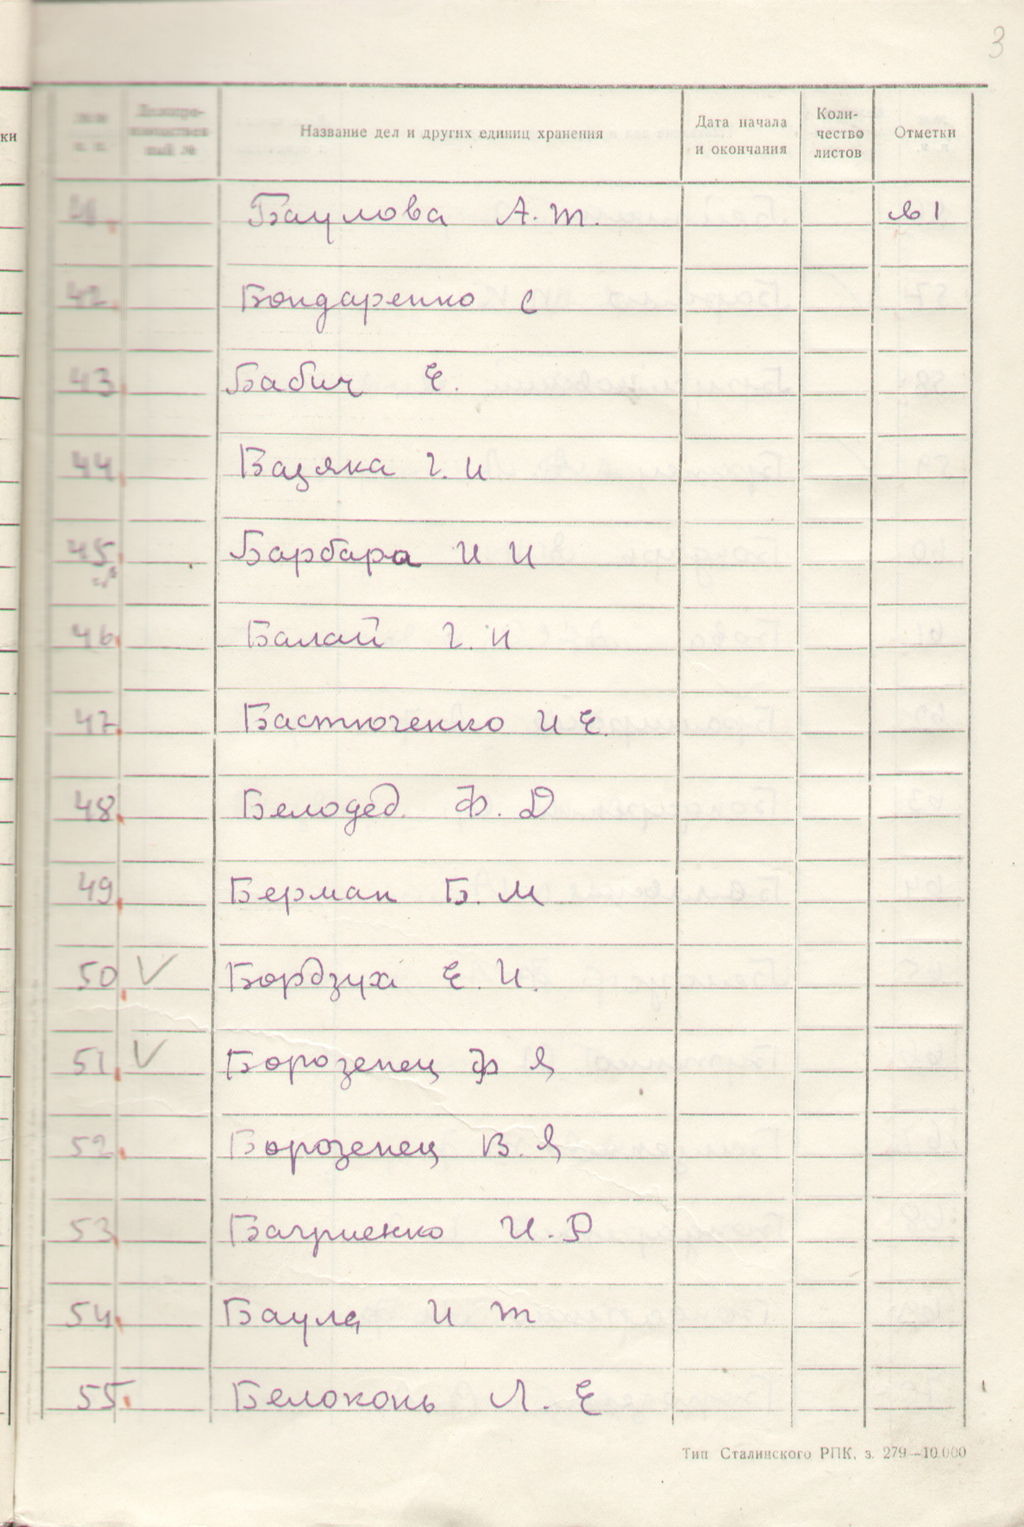 3
ки
Делопро-
изводствен
ный №
Название дел и других единиц хранения
Дата начала
и окончания
Коли-
чество
листов
Отметки
41. Баулова А. Т.
42. Бондаренко С
43. Бабич Е.
44. Базяка Г. И
45. Барбара И И
46. Балай Г. И
47. Бастюченко И Е.
48. Белодед Ф. Д
49. Берман Б. М
50. Бордзуха Е. И.
51. Борозенец Ф Я
52. Борозенец В. Я
53. Багриенко И. Р
54. Баула И Т
55. Белоконь Л. Е
Тип Сталинского РПК, з. 279—10.000